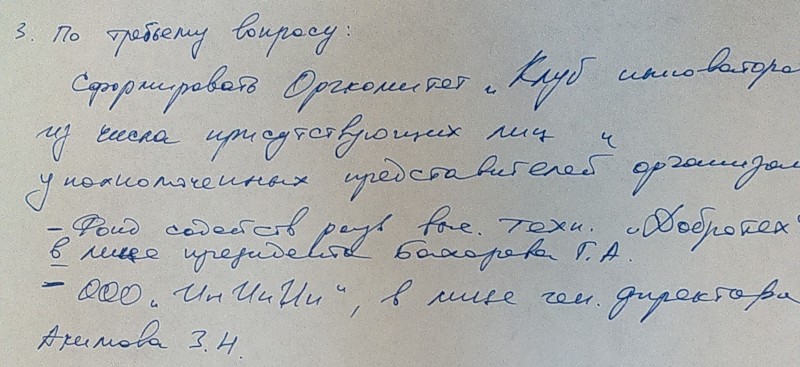 3. По третьему вопросу:
Сформировать Оргкомитет „Клуб инноватора
из числа присутствующих лиц и
уполномоченных представителей организац
- Фонд содейств разв выс. техн. „Добротех"
в лице президента Бахарева Г.А.
- ООО „ИнИнИн", в лице ген. директора
Акимова З.Н.